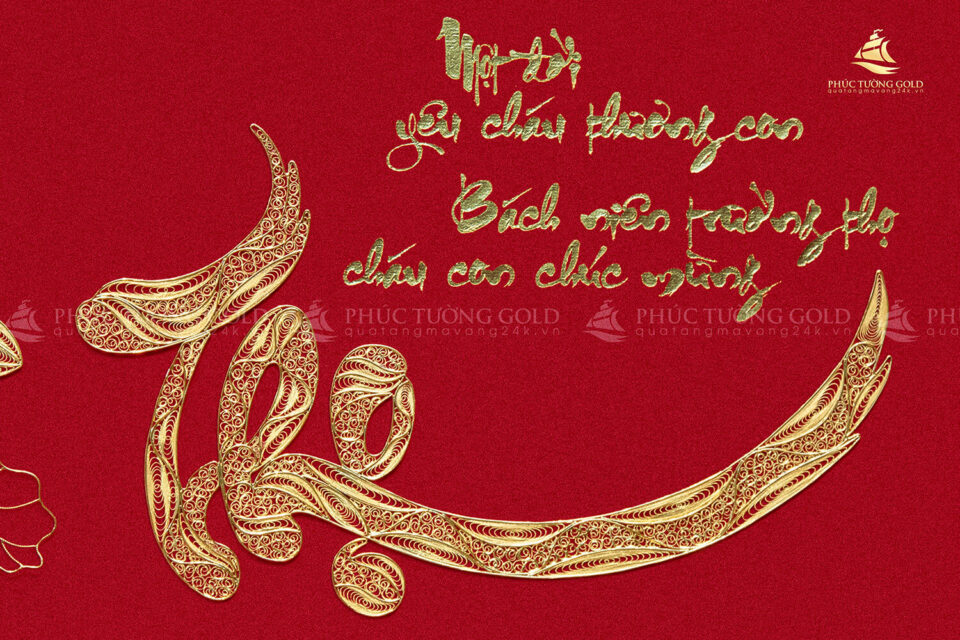 Một đời
yêu cháu thương con
Bách niên trường thọ
cháu con chúc mừng
PHÚC TƯỜNG GOLD
quatangmavang24k.vn
PHÚC TƯỜNG GOLD
quatangmavang24k.vn
PHÚC TƯỜNG GOLD
quatangmavang24k.vn
PHÚC
Thọ